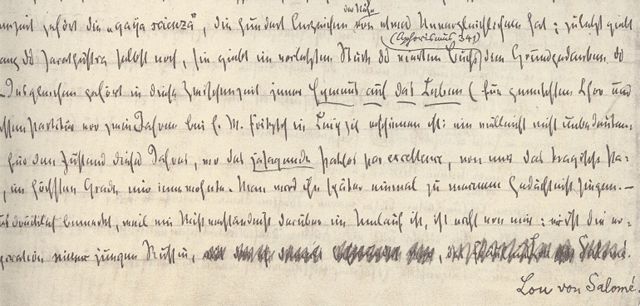 der Nähe
nzeit gehört die „gaya scienza", die hundert Anzeichen von etwas Unvergleichlichem hat; zuletzt giebt
(Aphorismus 341)
ang des Zarathustra selbst noch, sie giebt im vorletzten Stück des vierten Buchs den Grundgedanken de
– Insgleichen gehört in diese Zwischenzeit jener Hymnus auf das Leben (für gemischten Chor und
ssen Partitur vor zwei Jahren bei E. W. Fritzsch in Leipzig erschienen ist: ein vielleicht nicht unbedeuten
für den Zustand dieses Jahres, wo das jasagende Pathos par excellence, von mir das tragische Pa-
, im höchsten Grade mir innewohnte. Man wird ihn später einmal zu meinem Gedächtniß singen. –
ausdrücklich bemerkt, weil ein Mißverständniß darüber im Umlauf ist, ist nicht von mir: er ist die er-
piration einer jungen Russin,
Lou von Salomé.